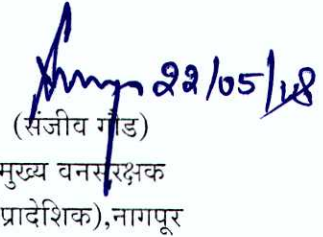 22/05/18
(संजीव गौड)
मुख्य वनसंरक्षक
प्रादेशिक),नागपूर